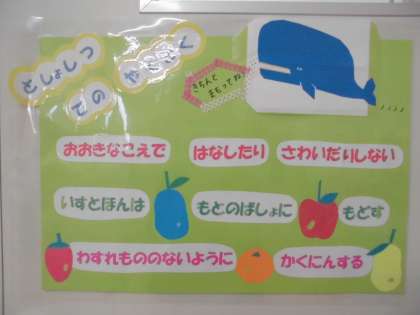 としょしつ
での やくそく
きちんと
まもってね!
おおきなこえで はなしたり さわいだりしない
いすとほんは もとのばしょに もどす
わすれもののないように かくにんする